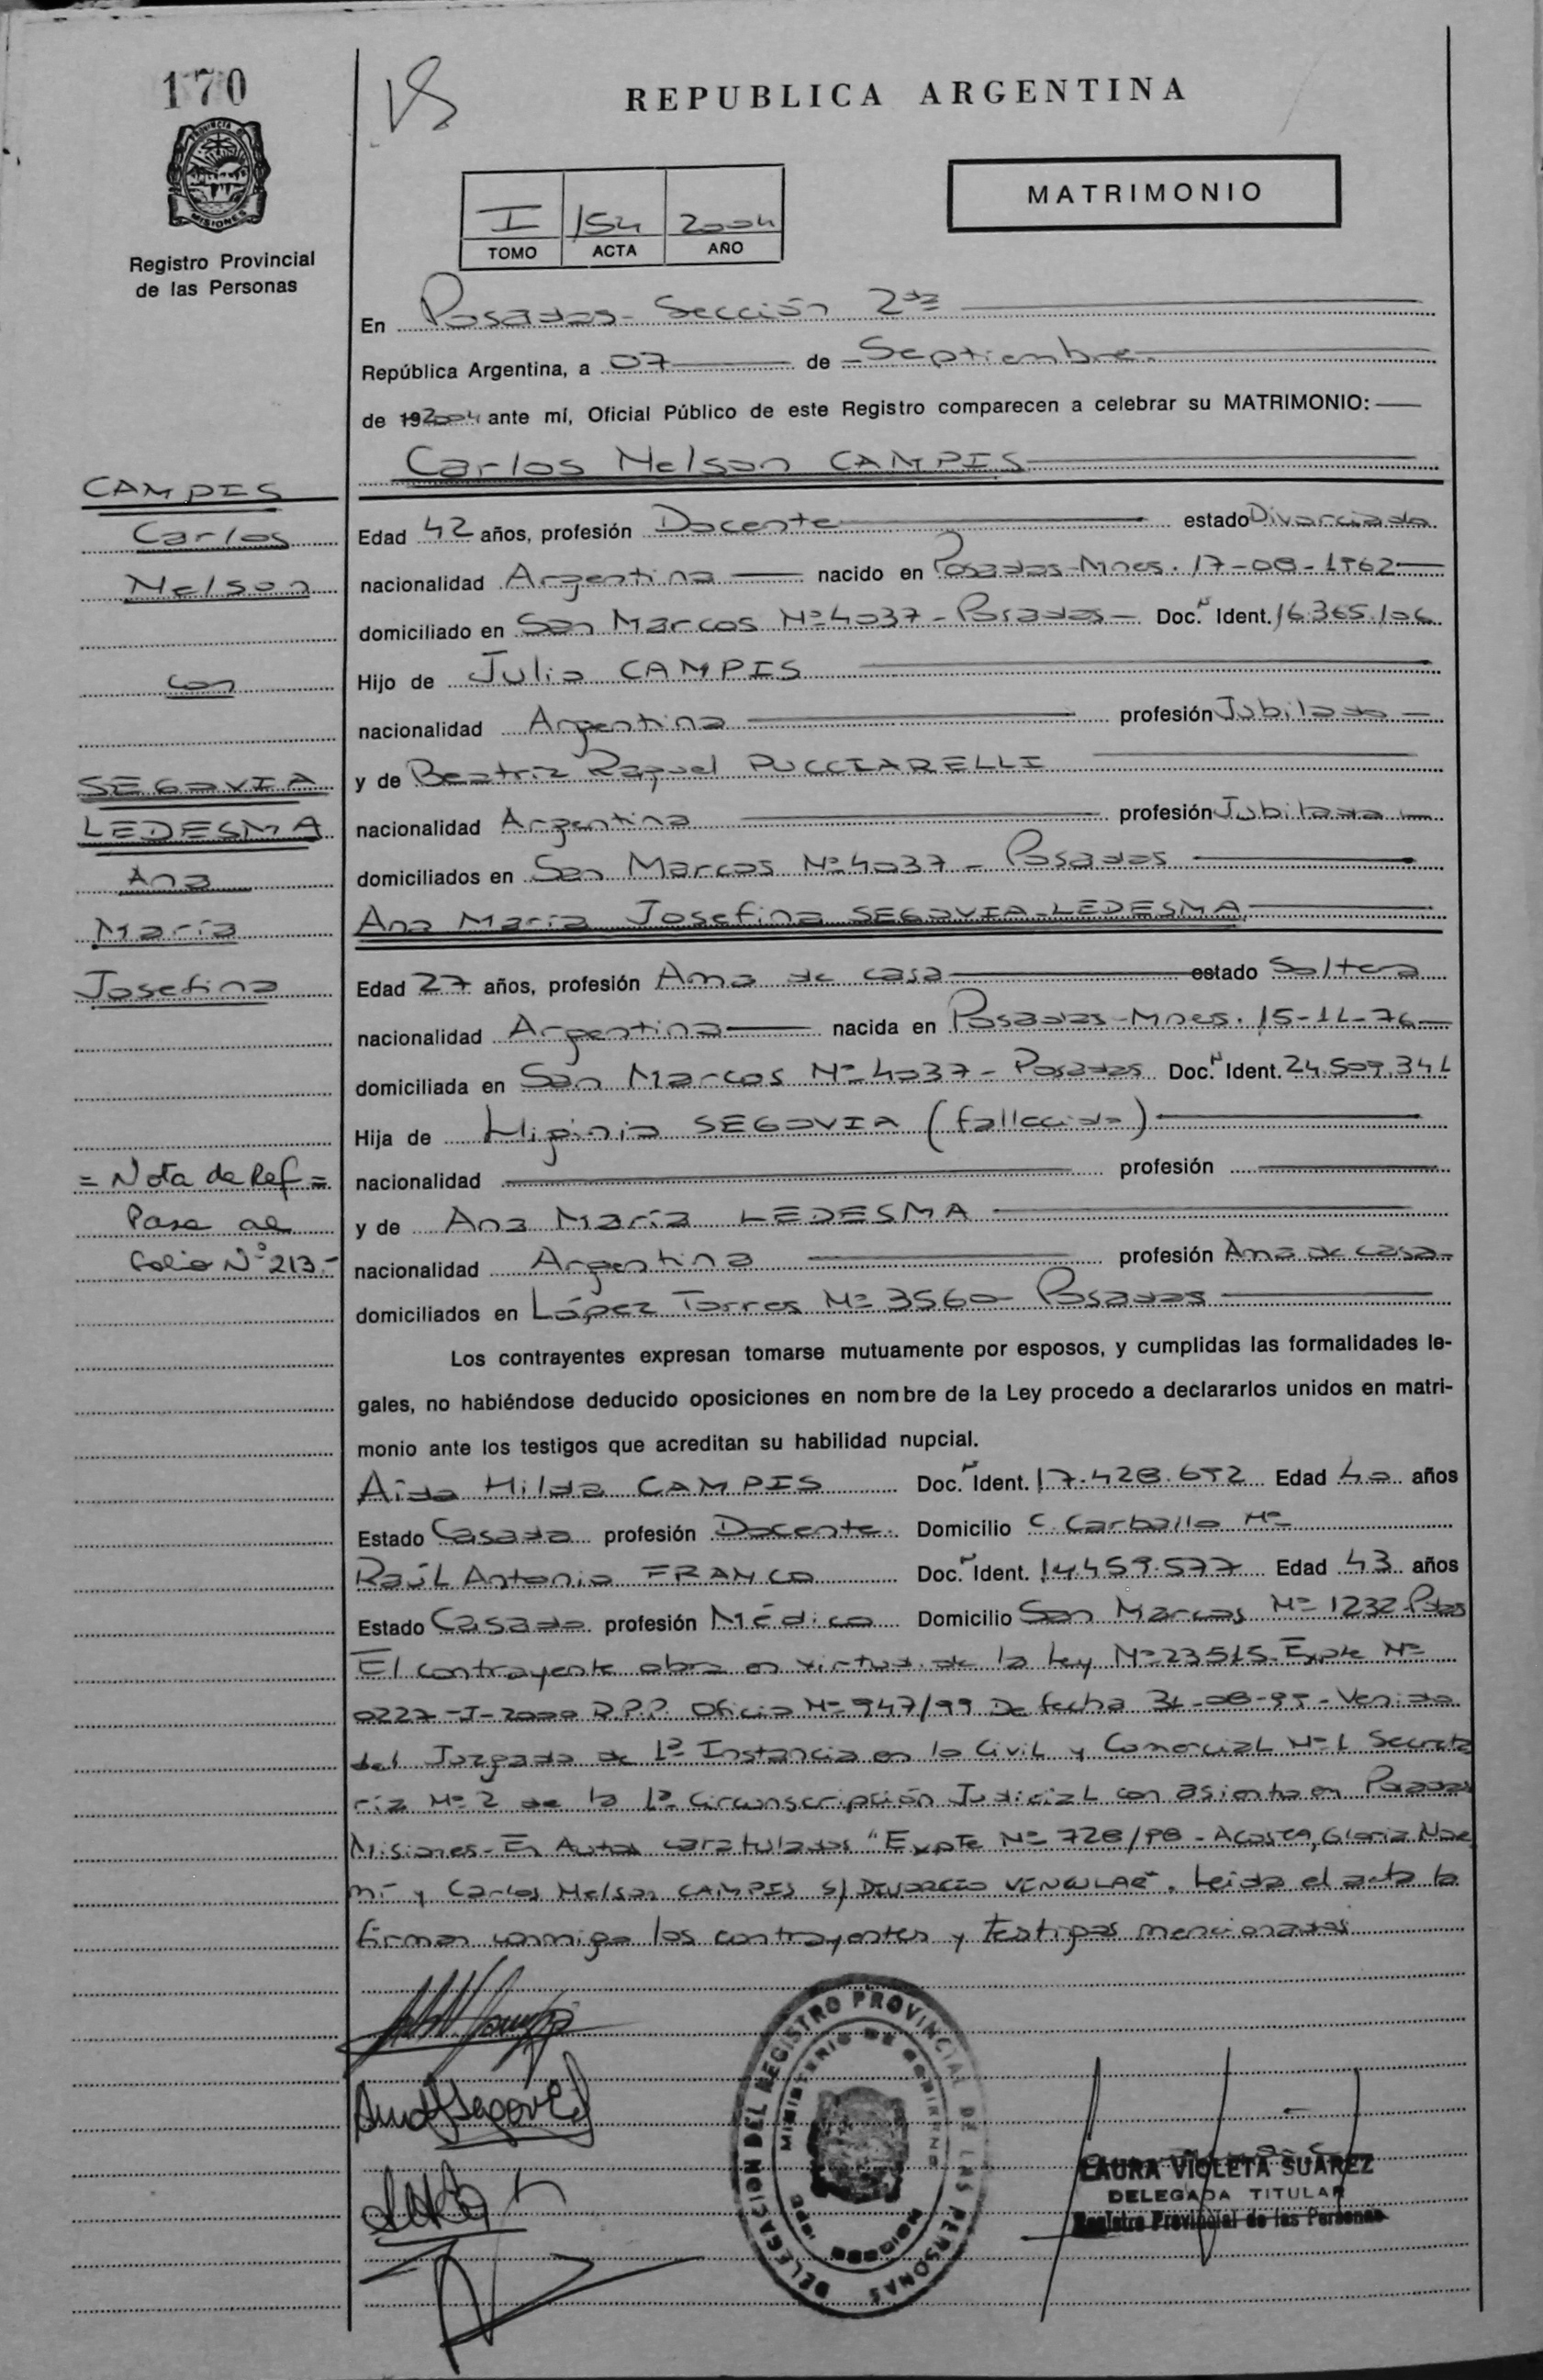 170
REPUBLICA ARGENTINA
MATRIMONIO
I 154 2004
TOMO ACTA AÑO
PROVINCIA DE
MISIONES
Registro Provincial
de las Personas
En Posadas- Sección 2da
República Argentina, a 07 de Septiembre
de 192004 ante mí, Oficial Público de este Registro comparecen a celebrar su MATRIMONIO:
Carlos Nelson CAMPIS
CAMPIS
Carlos
Nelson
con
SEGOVIA
LEDESMA
Ana
María
Josefina
= Nota de Ref =
Pasa al
folio N° 213.-
Edad 42 años, profesión Docente estado Divorciado
nacionalidad Argentina nacido en Posadas-Mnes. 17-08-1962
domiciliado en San Marcos Nº 4037 - Posadas- Doc. N Ident. 16.365.106
Hijo de Julio CAMPIS
nacionalidad Argentina profesión Jubilado
y de Beatriz Raquel PUCCIARELLI
nacionalidad Argentina profesión Jubilada
domiciliados en San Marcos Nº 4037 - Posadas
Ana María Josefina SEGOVIA-LEDESMA
Edad 27 años, profesión Ama de casa estado Soltera
nacionalidad Argentina nacida en Posadas-Mnes. 15-11-76
domiciliada en San Marcos Nº 4037 - Posadas Doc. N Ident. 24.509.341
Hija de Higinio SEGOVIA (fallecido)
nacionalidad profesión
y de Ana María LEDESMA
nacionalidad Argentina profesión Ama de casa
domiciliados en López Torres Nº 3560- Posadas
Los contrayentes expresan tomarse mutuamente por esposos, y cumplidas las formalidades le-
gales, no habiéndose deducido oposiciones en nombre de la Ley procedo a declararlos unidos en matri-
monio ante los testigos que acreditan su habilidad nupcial.
Aída Hilda CAMPIS Doc. N Ident. 17.428.692 Edad 40 años
Estado Casada profesión Docente. Domicilio C. Carballo Nº
Raúl Antonio FRANCO Doc. N Ident. 14.459.577 Edad 43 años
Estado Casado profesión Médico Domicilio San Marcos Nº 1232-Pdas
El contrayente obra en virtud de la Ley Nº 23515-Expte Nº
0227-I-2000 R.P.P. Oficio Nº 947/99 De fecha 31-08-99-Venido
del Juzgado de 1ª Instancia en lo Civil y Comercial Nº 1 Secreta
ría Nº 2 de la 1ª Circunscripción Judicial con asiento en Posadas
Misiones- En Autos caratulados "Expte Nº 728/98 - Acosta, Gloria Noe
mí y Carlos Nelson CAMPIS S/ DIVORCIO VINCULAR". Leída el acta la
firman conmigo los contrayentes y testigos mencionados
DELEGACION DEL REGISTRO PROVINCIAL DE LAS PERSONAS
MINISTERIO DE GOBIERNO
MISIONES
LAURA VIOLETA SUAREZ
DELEGADA TITULAR
Registro Provincial de las Personas